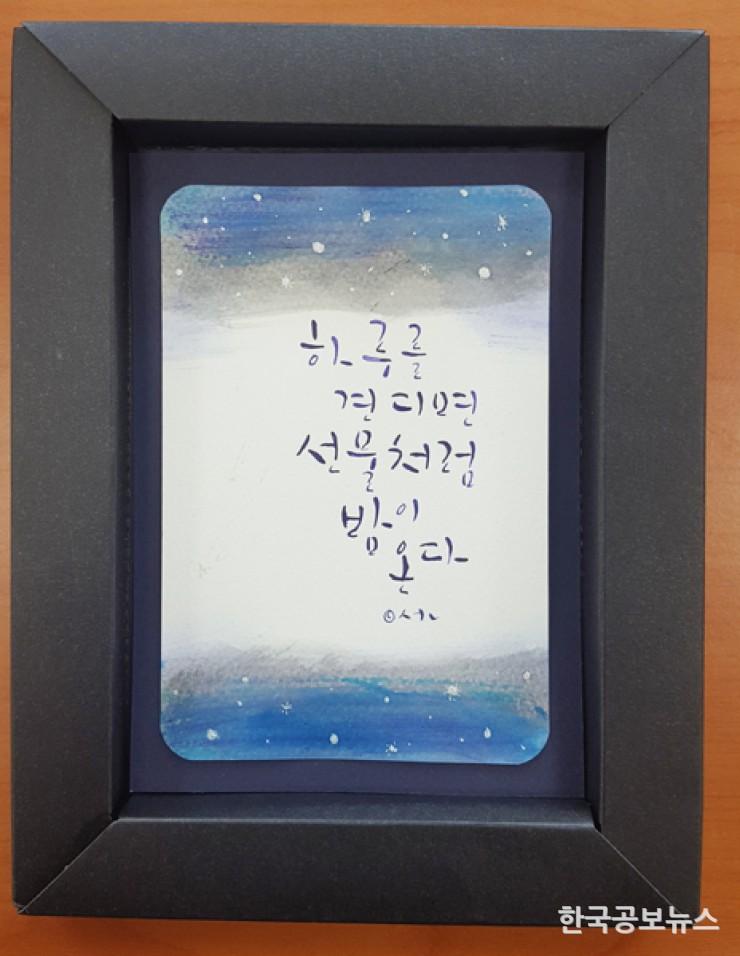 하루를
견디면
선물처럼
밤이
온다
한국공보뉴스